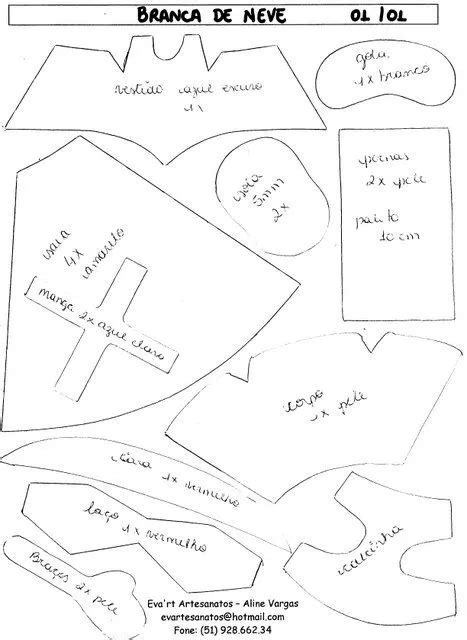 BRANCA DE NEVE 01/01
vestido azul escuro
1x
gola
1x branco
pernas
2x pele
palito
10 cm
5mm
2x
saia
4x
amarelo
manga 2x azul claro
corpo
1x pele
tiara 1x vermelho
laço
1x vermelho
calcinha
Braços 2x pele
Eva'rt Artesanatos - Aline Vargas
evartesanatos@hotmail.com
Fone: (51) 928.662.34